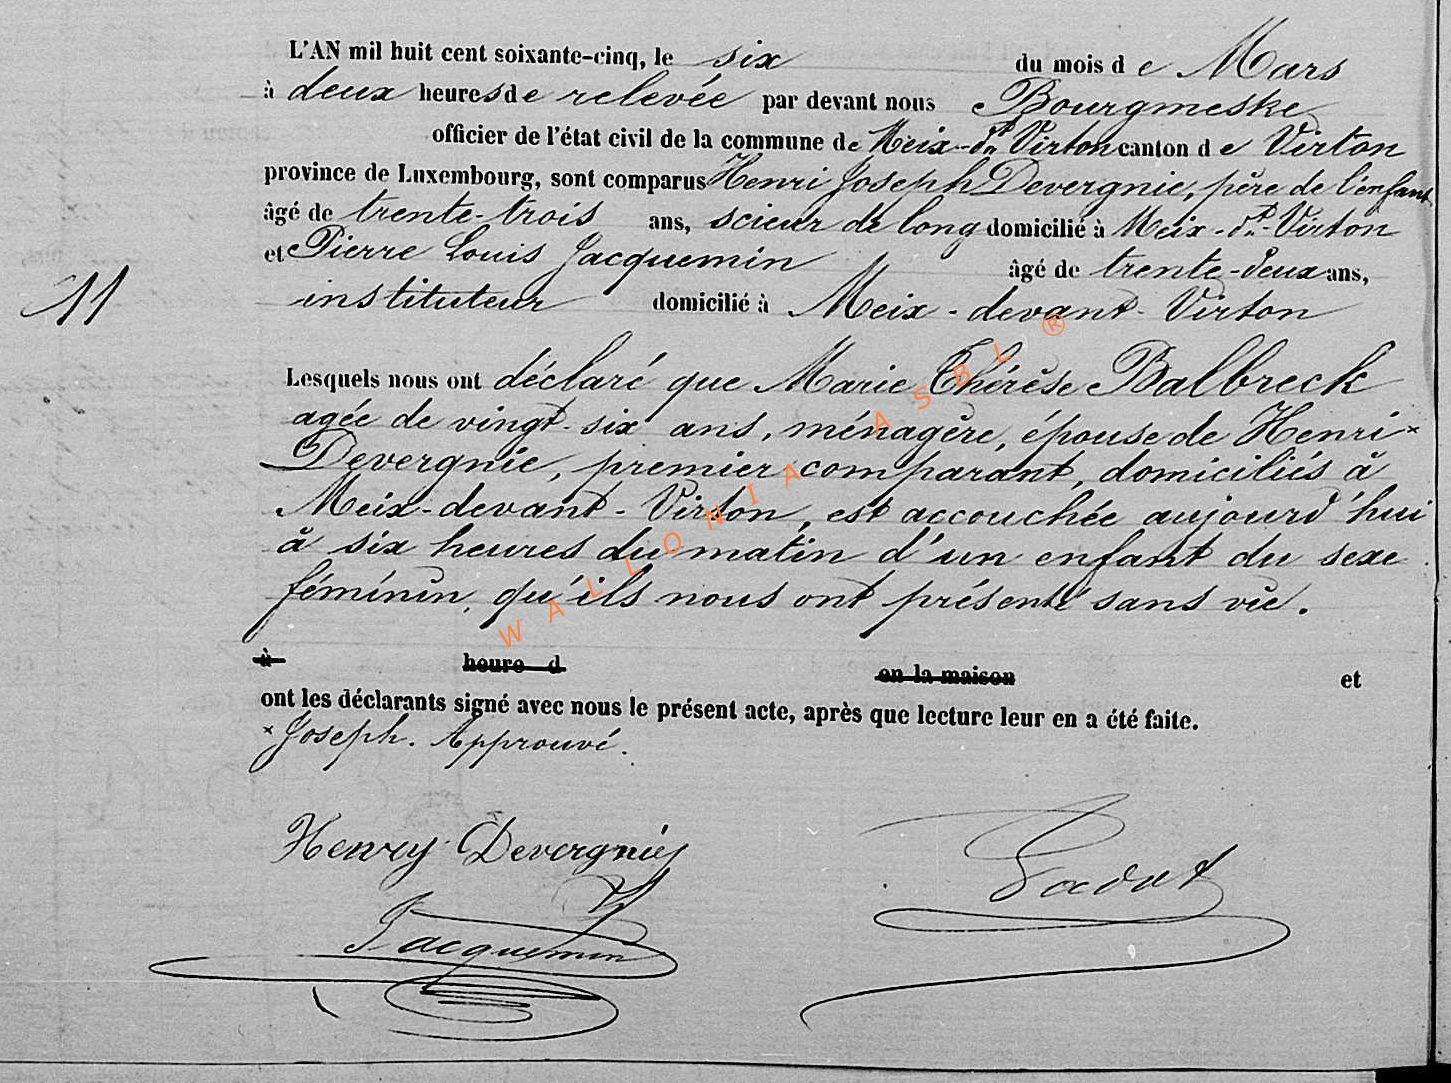 L'AN mil huit cent soixante-cinq, le six du mois de Mars
à deux heures de relevée par devant nous Bourgmestre
officier de l'état civil de la commune de Meix-dt Virton canton de Virton
province de Luxembourg, sont comparus Henri Joseph Devergnie, père de l'enfant
âgé de trente-trois ans, scieur de long domicilié à Meix-dt-Virton
et Pierre Louis Jacquemin âgé de trente-deux ans,
11
instituteur domicilié à Meix-devant-Virton
Lesquels nous ont déclaré que Marie Thérèse Balbreck
agée de vingt-six ans, ménagère, épouse de Henri x
Devergnie, premier comparant, domiciliés à
Meix-devant-Virton, est accouchée aujourd'hui
à six heures du matin d'un enfant du sexe
féminin, qu'ils nous ont présenté sans vie.
à heure d en la maison et
ont les déclarants signé avec nous le présent acte, après que lecture leur en a été faite.
x Joseph. Approuvé.
Henry Devergnies
Jacquemin
WALLONIA ASBL ®